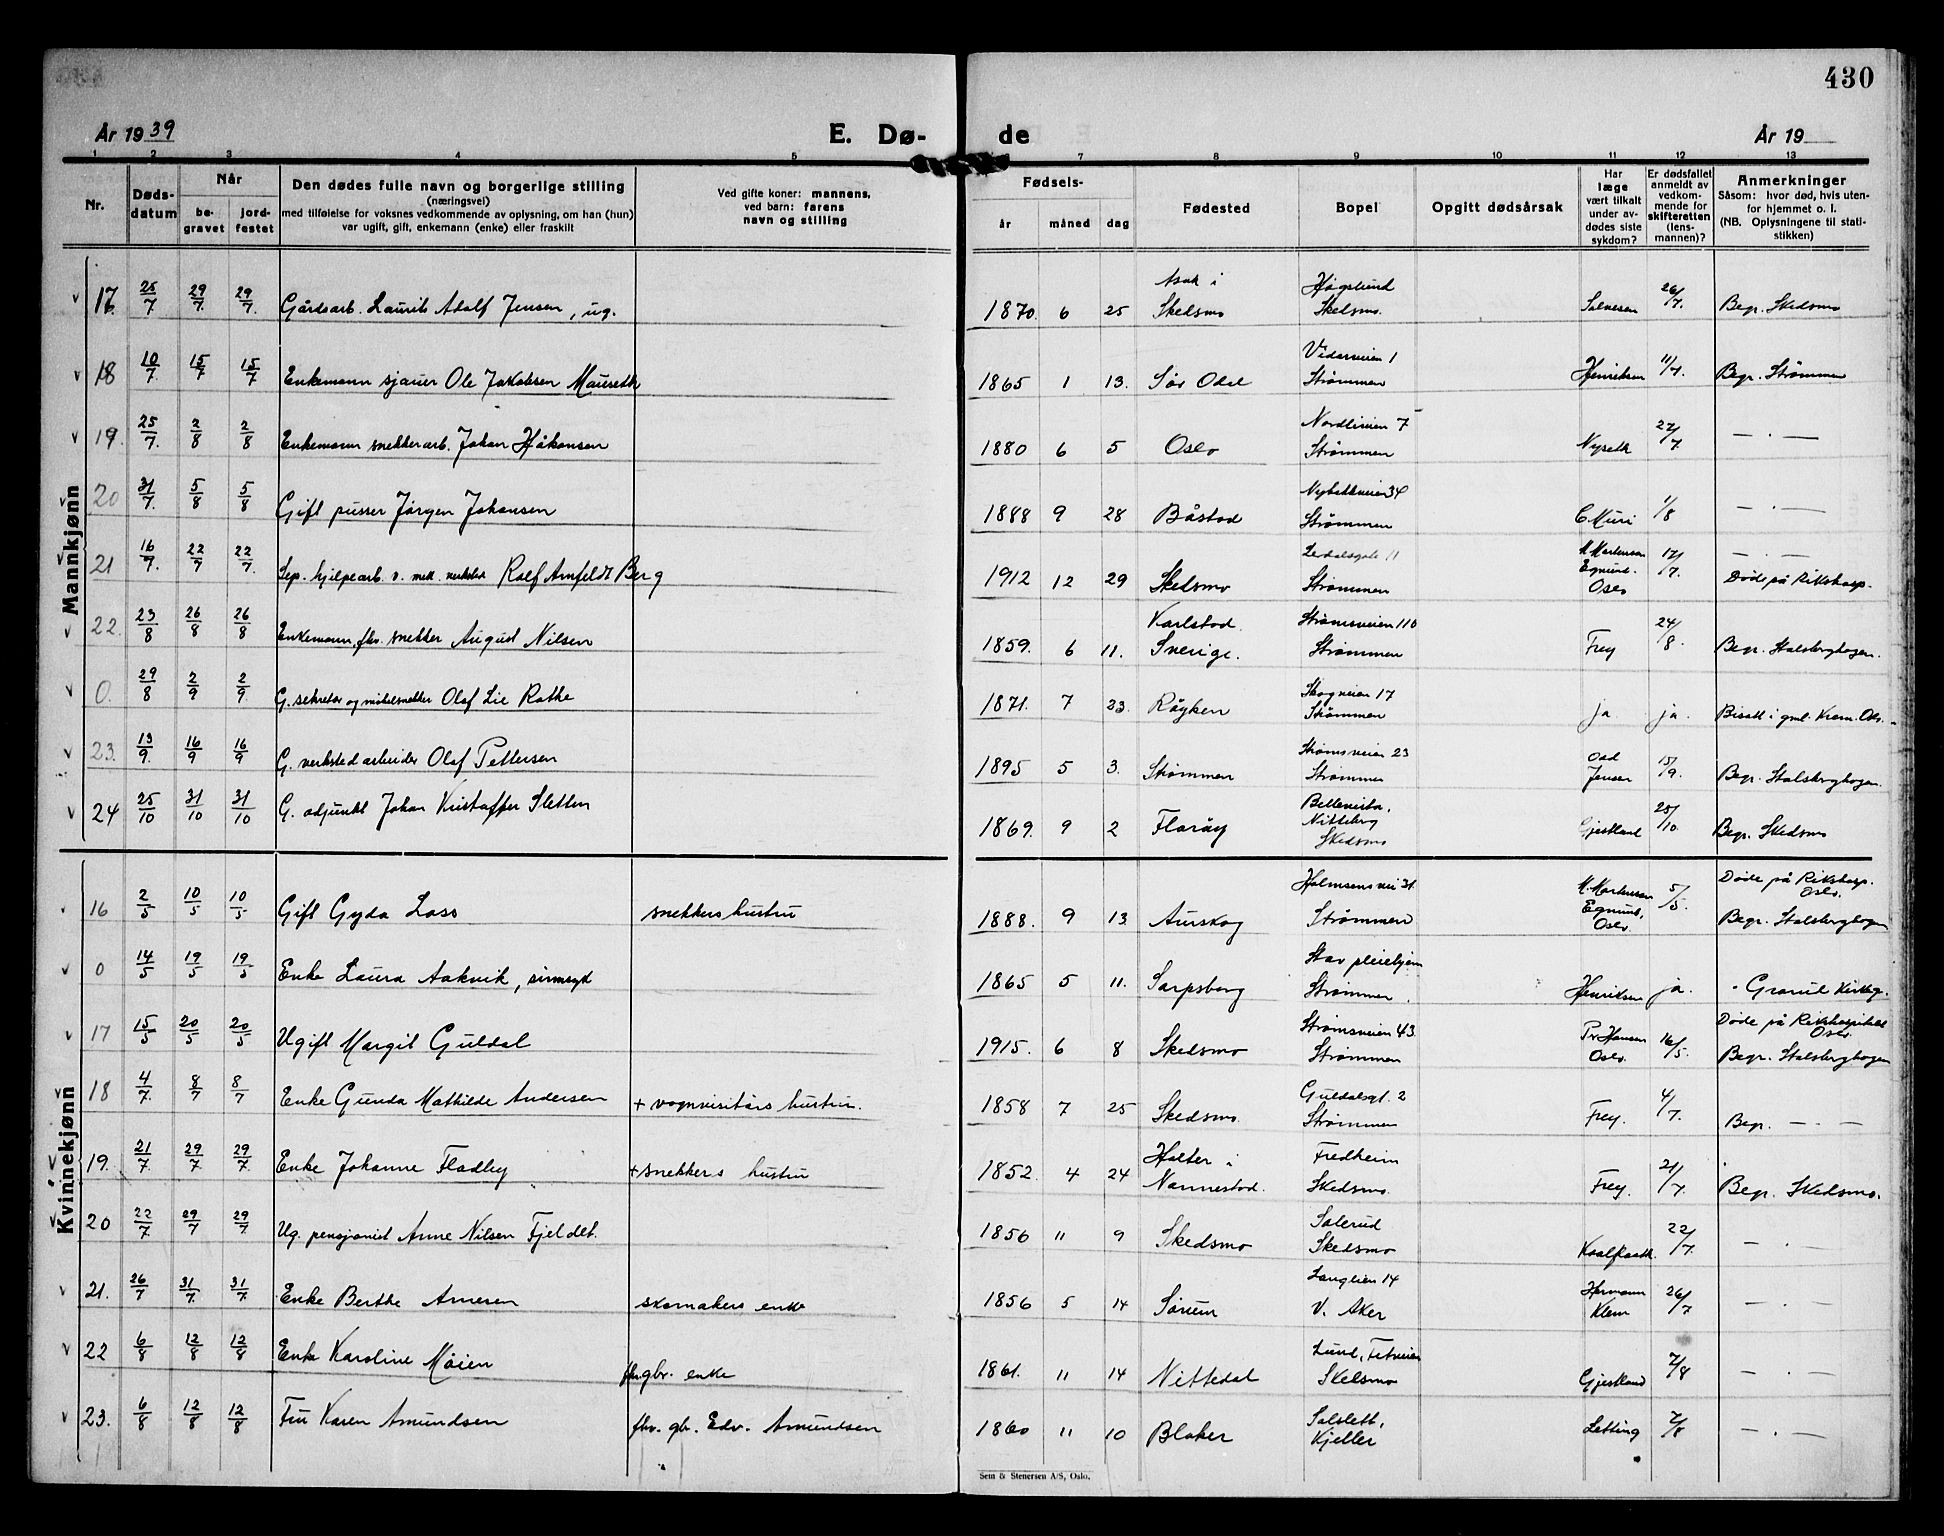 430
År 1939
E. Dø- de
År 19
1 2 3 4 5 7 8 9 10 11 12 13
Nr.
Døds-
datum
Når
be-
gravet
jord-
festet
Den dødes fulle navn og borgerlige stilling
(næringsvei)
med tilføielse for voksnes vedkommende av oplysning, om han (hun)
var ugift, gift, enkemann (enke) eller fraskilt
Ved gifte koner: mannens,
ved barn: farens
navn og stilling
Fødsels-
år måned dag
Fødested
Bopel
Opgitt dødsårsak
Har
læge
vært tilkalt
under av-
dødes siste
sykdom?
Er dødsfallet
anmeldt av
vedkom-
mende for
skifteretten
(lens-
mannen)?
Anmerkninger
Såsom: hvor død, hvis uten-
for hjemmet o. l.
(NB. Oplysningene til stati-
stikken)
Mannkjønn
17. 25/7 29/7 29/7. Gårdsarb. Laurits Adolf Jensen, ug. 1870. 6 25 Asak i Skedsmo Høgslund Skedsmo. Salvesen 26/7. Begr. Skedsmo
18 10/7. 15/7 15/7 Enkemann sjauer Ole Jakobsen Mauseth 1865 1 13. Sør Odal Vidarveien 1 Strømmen Henriksen 11/7. Begr. Strømmen
19. 25/7. 2/8 2/8 Enkemann snekkerarb. Johan Håkonsen 1880 6 5 Oslo Nordliveien 7 Strømmen Nyseth 27/7 — . —
20 31/7. 5/8 5/8 Gift pusser Jørgen Johansen 1888 9 28 Båstad Nybakkveien 34 Strømmen C Muri 1/8 — . —
21 16/7. 22/7 22/7. Sep. hjelpearb. v. mek. verksted Rolf Arnfeldt Berg 1912 12 29 Skedsmo Lerdalsgate 11 Strømmen M. Martensen Egnund. Oslo 17/7. — . — Døde på Rikshosp.
22. 23/8 26/8 26/8 Enkemann, fhv. snekker August Nilsen 1859. 6 11. Karlstad. Sverige. Strømsveien 110 Strømmen Frey 24/8. Begr. Stalsberghagen.
0. 29/8 2/9 2/9. G. sekretær og møbelsnekker Olaf Lie Rothe 1871. 7 23. Røyken Skogveien 17 Strømmen ja ja. Bisatt i gml. Krem. Oslo.
23. 13/9. 16/9 16/9 G. verkstedarbeider Olaf Pettersen 1895 5 3. Strømmen Strømsveien 23 Strømmen Odd Jensen 15/9. Begr. Stalsberghagen.
24 25/10 31/10 31/10 G. adjunkt Johan Kristoffer Sletten 1869. 9 2 Florøy Bellevista, Nitteberg Skedsmo Gjestland 25/10. Begr. Skedsmo
Kvinnekjønn
16 2/5 10/5 10/5 Gift Gyda Lass snekkers hustru 1888. 9 13. Aurskog Holmsensvei 31 Strømmen M. Martensen Egnund, Oslo 5/5. Døde på Rikshosp. Oslo. Begr. Stalsberghagen
0 14/5 19/5 19/5 Enke Laura Aakvik, sinnsyk 1865 5 11. Sarpsborg Stav pleiehjem Strømmen. Henriksen ja. Grorud Kirkeg.
17 15/5 20/5 20/5. Ugift Margit Guldal 1915. 6 8 Skedsmo Strømsveien 43. Strømmen Pr. Hansen Oslo. 16/5. Døde på Rikshospitalet Oslo. Begr. Stalsberghagen
18 4/7. 8/7 8/7 Enke Gunda Mathilde Andersen + vognvisitørs hustru. 1858 7 25 Skedsmo. Guldalsgt. 2 Strømmen Frey. 4/7. Begr. — . —
19. 21/7. 29/7 29/7. Enke Johanne Fladby + snekkers hustru 1852. 4 24 Holter i Nannestad. Fredheim Skedsmo. Frey. 21/7. Begr. Skedsmo.
20 22/7 29/7 29/7. Ug. pensjonist Anne Nilsen Fjeldet. 1856 11 9 Skedsmo Solerud Skedsmo Kaalfaath. 22/7. — . —
21. 26/7 31/7. 31/7. Enke Berthe Arnesen skomakers enke 1856 5 14 Sørum Langlien 14 V. Aker Hermann Klem 26/7 — . —
22 6/8 12/8 12/8 Enke Karoline Møien fhv gbr. enke 1861. 11 14 Nittedal Lund, Fetveien Skedsmo Gjestland 7/8 — . —
23. 6/8 12/8 12/8 Fru Karen Amundsen fhv. gbr. Edv. Amundsen 1860 11 10 Blaker Solslett, Kjeller Letting 7/8 — . —
Sem & Stenersen A/S, Oslo.